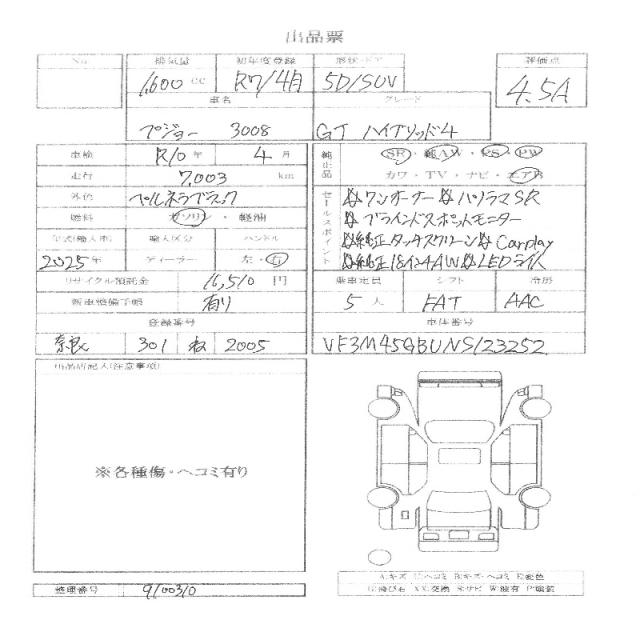 出品票
No. 排気量 初年度登録 形状・ドア 評価点
1,600 cc R7/4月 5D/SUV 4.5A
車名 グレード
プジョー 3008 GT ハイブリッド4
車検 R10年 4月
走行 7,003 km
外色 ペルネラブラック
燃料 ガソリン・軽油
年式(輸入車) 輸入区分 ハンドル
2025年 ディーラー 左・右
リサイクル預託金 16,510 円
新車整備手帳 有り
登録番号
奈良 301 ね 2005
純正品 SR・純AW・PS・PW
カワ・TV・ナビ・エアB
セールスポイント ワンオーナー パノラマSR
ブラインドスポットモニター
純正タッチスクリーン Carplay
純正18インチAW LEDライト
乗車定員 シフト 冷房
5人 FAT AAC
車体番号
VF3M45GBUNS123252
出品店記入(注意事項)
※各種傷・ヘコミ有り
A:キズ U:ヘコミ B:キズ・ヘコミ
G:飛び石 XX:交換 S:サビ W:波有 P:塗装
整理番号 9100310